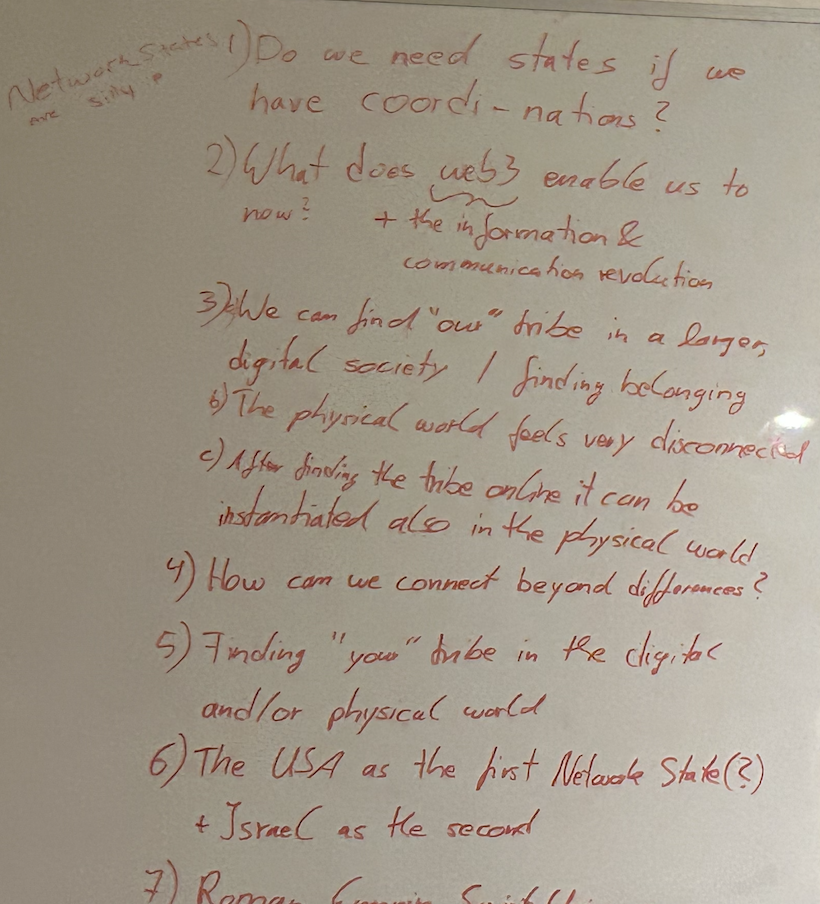 Network States
are silly ?
1) Do we need states if we
have coordi-nations?
2) What does web3 enable us to
now? + the information &
communication revolution
3) We can find "our" tribe in a larger,
digital society / finding belonging
b) The physical world feels very disconnected
c) After finding the tribe online it can be
instantiated also in the physical world
4) How can we connect beyond differences?
5) Finding "your" tribe in the digital
and/or physical world
6) The USA as the first Network State(?)
+ Israel as the second
7) Roman